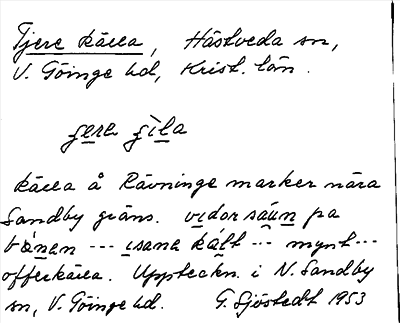 Tjere källa, Hästveda sn,
V. Göinge hd, Krist. län.
källa å Rävninge marker nära
Sandby gräns. vidor säun pa
--- isana kált --- mynt ---
offerkälla. Uppteckn. i N. Sandby
sn, V. Göinge hd. G. Sjöstedt 1953